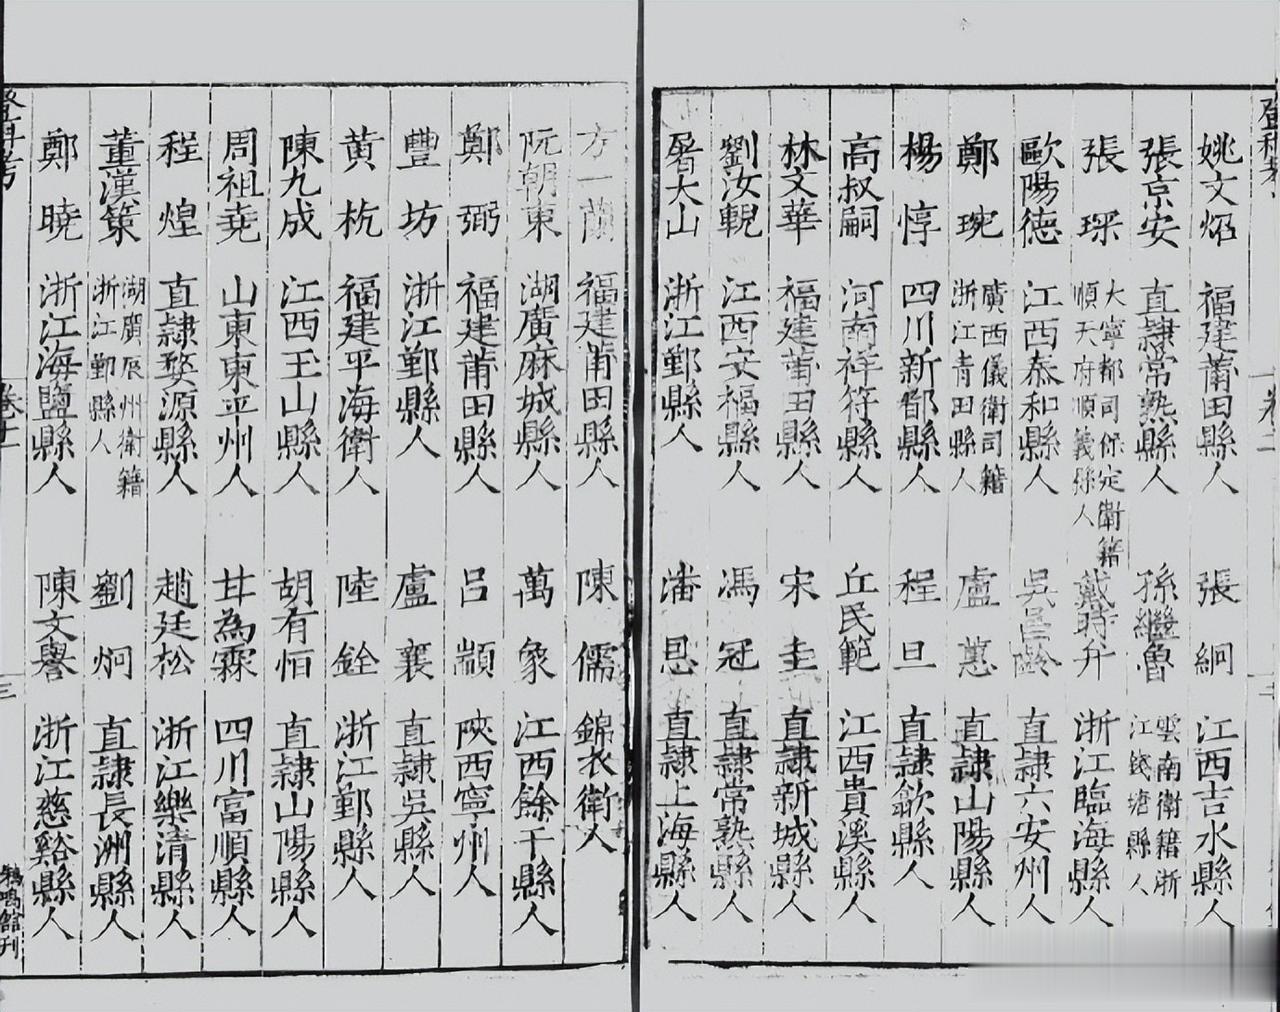 登科考
卷二
姚文炤 福建莆田縣人 張絅 江西吉水縣人
張京安 直隸常熟縣人 孫繼魯 雲南衛籍浙江錢塘縣人
張琛 大寧都司保定衛籍順天府順義縣人 戴時弁 浙江臨海縣人
歐陽德 江西泰和縣人 吳昌齡 直隸六安州人
鄭琬 廣西儀衛司籍浙江青田縣人 盧蕙 直隸山陽縣人
楊惇 四川新都縣人 程旦 直隸歙縣人
高叔嗣 河南祥符縣人 丘民範 江西貴溪縣人
林文華 福建莆田縣人 宋圭 直隸新城縣人
劉汝輗 江西安福縣人 馮冠 直隸常熟縣人
屠大山 浙江鄞縣人 潘恩 直隸上海縣人
方一蘭 福建莆田縣人 陳儒 錦衣衛人
阮朝東 湖廣麻城縣人 萬象 江西餘干縣人
鄭弼 福建莆田縣人 呂顓 陝西寧州人
豐坊 浙江鄞縣人 盧襄 直隸吳縣人
黃杭 福建平海衛人 陸銓 浙江鄞縣人
陳九成 江西玉山縣人 胡有恒 直隸山陽縣人
周祖堯 山東東平州人 甘為霖 四川富順縣人
程煌 直隸婺源縣人 趙廷松 浙江樂清縣人
董漢策 湖廣辰州衛籍浙江鄞縣人 劉炯 直隸長洲縣人
鄭曉 浙江海鹽縣人 陳文譽 浙江慈谿縣人
登科考 卷二 三 鴉鳴館刊